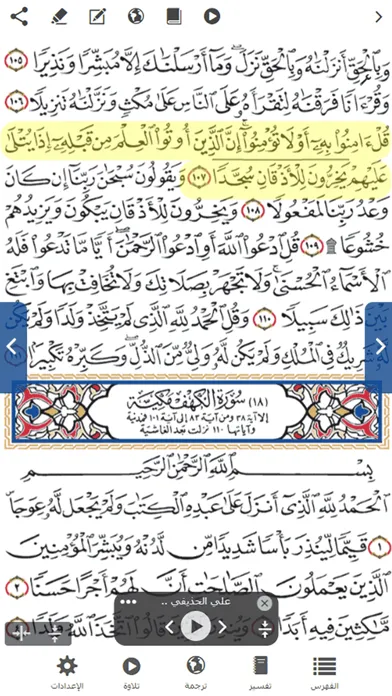 وَبِالْحَقِّ أَنزَلْنَاهُ وَبِالْحَقِّ نَزَلَ ۗ وَمَا أَرْسَلْنَاكَ إِلَّا مُبَشِّرًا وَنَذِيرًا ١٠٥
وَقُرْءَانًا فَرَقْنَاهُ لِتَقْرَأَهُ عَلَى النَّاسِ عَلَى مُكْثٍ وَنَزَّلْنَاهُ تَنزِيلًا ١٠٦
قُلْ ءَامِنُوا بِهِ أَوْ لَا تُؤْمِنُوا ۚ إِنَّ الَّذِينَ أُوتُوا الْعِلْمَ مِن قَبْلِهِ إِذَا يُتْلَى
عَلَيْهِمْ يَخِرُّونَ لِلْأَذْقَانِ سُجَّدًا ١٠٧ وَيَقُولُونَ سُبْحَانَ رَبِّنَا إِن كَانَ
وَعْدُ رَبِّنَا لَمَفْعُولًا ١٠٨ وَيَخِرُّونَ لِلْأَذْقَانِ يَبْكُونَ وَيَزِيدُهُمْ
خُشُوعًا ۩ ١٠٩ قُلِ ادْعُوا اللَّهَ أَوِ ادْعُوا الرَّحْمَٰنَ ۖ أَيًّا مَّا تَدْعُوا فَلَهُ
الْأَسْمَاءُ الْحُسْنَىٰ ۚ وَلَا تَجْهَرْ بِصَلَاتِكَ وَلَا تُخَافِتْ بِهَا وَابْتَغِ
بَيْنَ ذَٰلِكَ سَبِيلًا ١١٠ وَقُلِ الْحَمْدُ لِلَّهِ الَّذِي لَمْ يَتَّخِذْ وَلَدًا وَلَمْ يَكُن
شَرِيكٌ فِي الْمُلْكِ وَلَمْ يَكُن لَّهُ وَلِيٌّ مِّنَ الذُّلِّ ۖ وَكَبِّرْهُ تَكْبِيرًا
(١٨) سُورَةُ الكَهْفِ مَكِّيَّة
إلا آية ٣٨ ومن آية ٨٣ إلى آية ١٠١ فمدنية
وآياتها ١١٠ نزلت بعد الغاشية
بِسْمِ اللَّهِ الرَّحْمَٰنِ الرَّحِيمِ
الْحَمْدُ لِلَّهِ الَّذِي أَنزَلَ عَلَىٰ عَبْدِهِ الْكِتَابَ وَلَمْ يَجْعَل لَّهُ عِوَجًا
١ قَيِّمًا لِّيُنذِرَ بَأْسًا شَدِيدًا مِّن لَّدُنْهُ وَيُبَشِّرَ الْمُؤْمِنِينَ
الَّذِينَ يَعْمَلُونَ الصَّالِحَاتِ أَنَّ لَهُمْ أَجْرًا حَسَنًا ٢
علي الحذيفي ..
مَّاكِثِينَ فِيهِ أَبَدًا ٣ قَالُوا اتَّخَذَ اللَّهُ وَلَدًا ٤
الفهرس تفسير ترجمة تلاوة الإعدادات